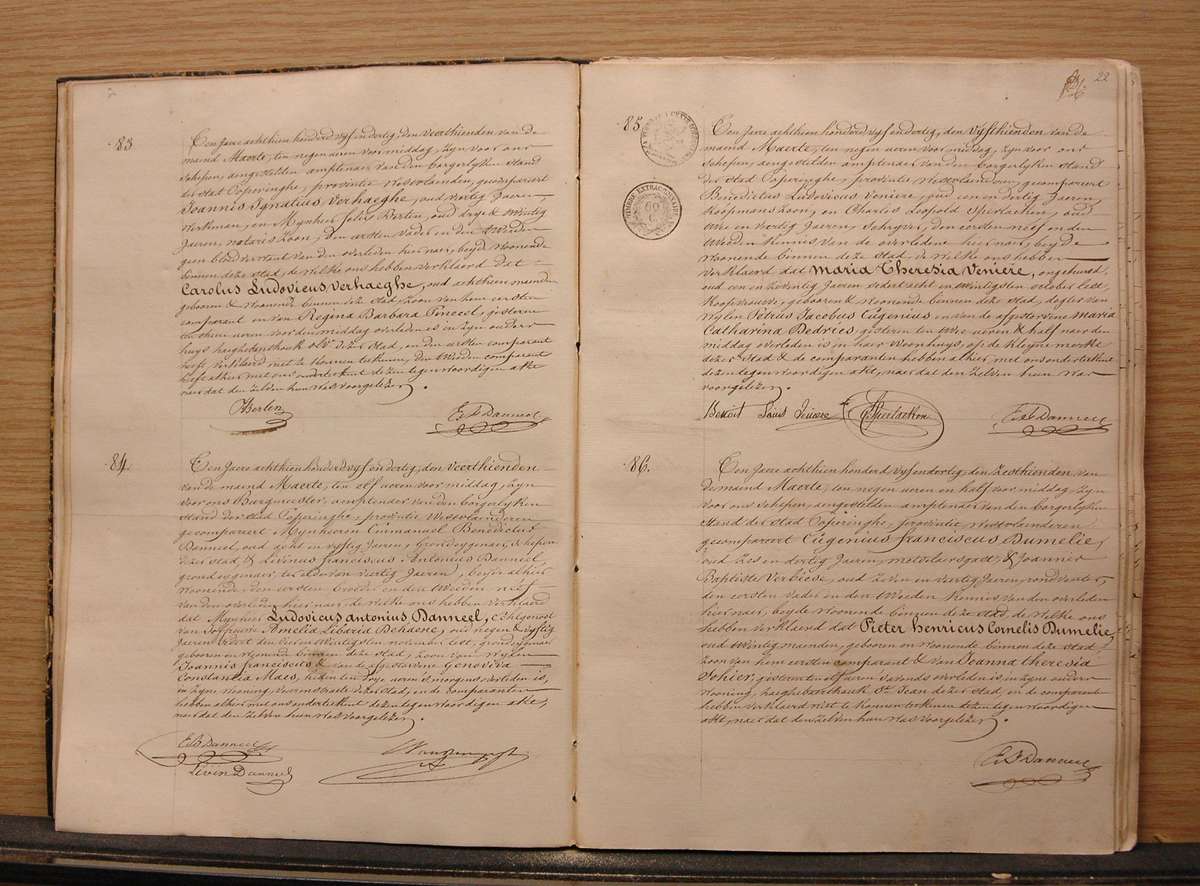 83.
Een Jaere achthien honderd vyf en dertig, den veerthienden van de
maend Maerte, ten negen ueren voor middag, zyn voor ons
schepen, aengestelden amptenaer van den borgerlyken stand
der stad Poperinghe, provintie Westvlanderen, gecompareert
Joannis Ignatius Verhaeghe, oud veertig Jaeren,
Werkman, en Mynheer felix Berten, oud drye & twintig
Jaeren, notaris zoon, den eersten vader en den tweeden
geen bloedverwant van den overleden hier naer, beyde woonende
binnen deze stad, de welke ons hebben verklaerd dat
Carolus Ludovicus Verhaeghe, oud achthien maenden
geboren & woonende binnen deze stad, zoon van hem eersten
comparant en van Regina Barbara Pinceel, gisteren
ten ueren voor den middag overleden is in zyn ouders
huys haeghebaerthouk dezer stad, en den eersten comparant
heeft verklaerd niet te konnen teekenen, den tweeden comparant
heeft alhier met ons onderteekent dezen tegenwoordigen akte
naer dat den zelven hun was voorgelezen.
Berten
E. B. Danneel
84.
Een Jaere achthien honderd vyf en dertig, den veerthienden
van de maend Maerte, ten elf ueren voor middag, zyn
voor ons Burgmeester, amptenaer van den borgerlyken
stand der stad Poperinghe, provintie Westvlaenderen
gecompareert Mynheeren Emmanuel Benedictus
Danneel, oud acht en vyftig Jaeren, schepen
dezer stad, & Livinus franciscus Antonius Danneel
veertig Jaeren, beyde alhier
woonende, den eersten en den tweeden neef
van den overleden hier naer, de welke ons hebben verklaerd
dat Mynheer Ludovicus antonius Danneel, Echtgenoot
van Joffrouw Amelia Libaria Behaene, oud negen & vyftig
Jaeren
geboren en woonende binnen deze stad, zoon van wylen
Joannis franciscus & van de afgestorvene Genoviva
Constantia Maes, heden ten ueren 's morgens overleden is,
in zyne wooning, dezer stad, en de comparanten
hebben alhier met ons onderteekent dezen tegenwoordigen akte,
naer dat den zelven hun was voorgelezen.
E. B. Danneel
Livin Danneel
22
85.
TIMBRE EXTRAORDINAIRE
Een Jaere achthien honderd vyf en dertig, den vyfthienden van de
maend Maerte, ten negen ueren voor middag, zyn voor ons
schepen, aengestelden amptenaer van den borgerlyken stand
der stad Poperinghe, provintie Westvlaenderen, gecompareert
Benedictus Ludovicus Veniere, oud een en dertig Jaeren,
Koopmans zoon, en Charles Leopold Speelacken, oud
twee en veertig Jaeren, schryver, den eersten neef en den
tweeden Kennis van de overledene hier naer, beyde
woonende binnen deze stad, de welke ons hebben
verklaerd dat Maria Theresia Veniere, ongehuwd,
oud een en zeventig Jaeren sedert acht en twintigsten october lest,
Koopvrouwe, geboren & woonende binnen deze stad, dogter van
wylen Petrus Jacobus Eugenius en van de afgestorvene Maria
Catharina Bedries, gisteren ten twee ueren & half naer den
middag overleden is in haer woonhuys, op de kleyne merkt
dezer stad & de comparanten hebben alhier met ons onderteekent
dezen tegenwoordigen akt, naer dat den zelven hun was
voorgelezen.
Benoit Louis Veniere
E. B. Danneel
86.
Een Jaere achthien honderd vyf en dertig, den zesthienden van
de maend Maerte, ten negen ueren en half voor middag, zyn
voor ons schepen, aengestelden amptenaer van den borgerlyken
stand der stad Poperinghe, provintie Westvlaenderen
gecompareert Eugenius franciscus Dumelie,
oud zes en dertig Jaeren, metselaersgast, & Joannes
Baptiste Verbiese, oud zeven en veertig Jaeren,
den eersten vader en den tweeden Kennis van den overleden
hier naer, beyde woonende binnen deze stad, de welke
ons hebben verklaerd dat Pieter henricus Cornelis Dumelie,
oud twintig maenden, geboren en woonende binnen deze stad,
zoon van hem eersten comparant & van Joanna theresia
Sohier, gisteren ten elf ueren 's avonds overleden is in zyne ouders
wooning, haeghebaerthouk St Jean dezer stad, en de comparanten
hebben verklaerd niet te konnen teekenen dezen tegenwoordigen
akt, naer dat den zelven hun was voorgelezen.
E. B. Danneel